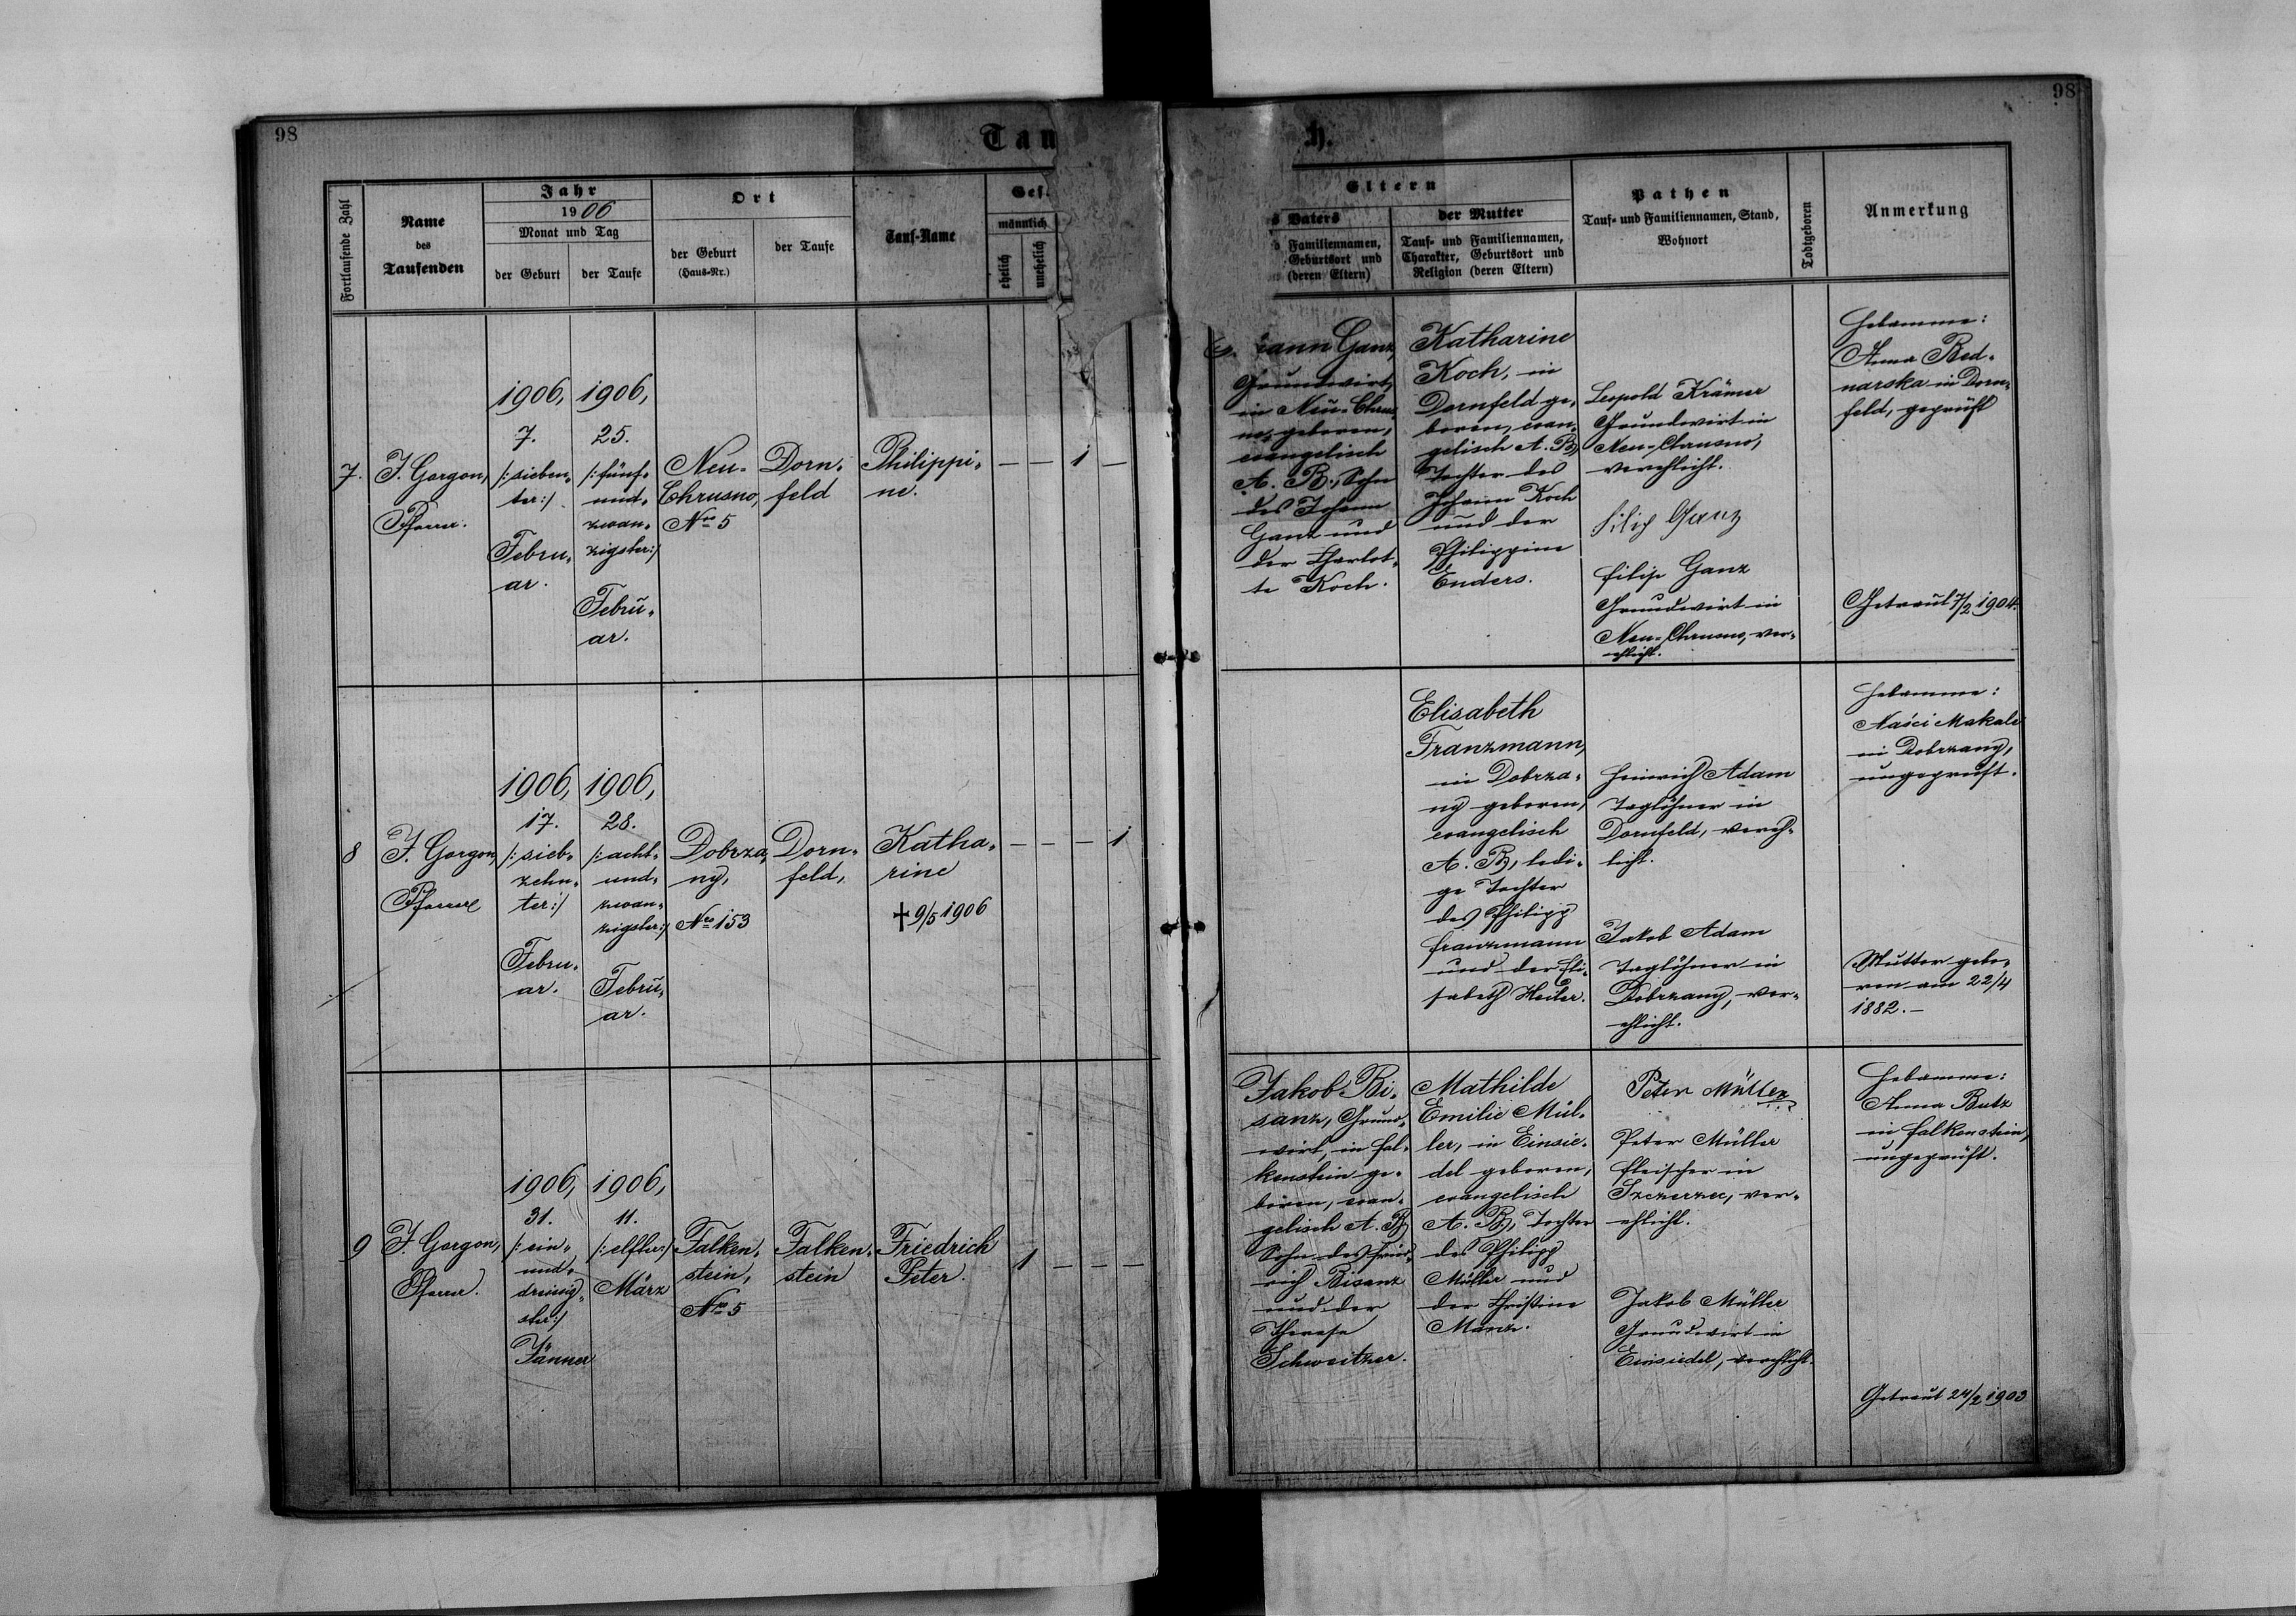 98
98
Tau
h.
Fortlaufende Zahl
Name
des
Taufenden
Jahr
1906
Monat und Tag
der Geburt
der Taufe
Ort
der Geburt
(Haus-Nr.)
der Taufe
Tauf-Name
Ges
männlich
ehelich
unehelich
Eltern
s Vaters
Familiennamen,
Geburtsort und
(deren Eltern)
der Mutter
Tauf- und Familiennamen,
Charakter, Geburtsort und
Religion (deren Eltern)
Pathen
Tauf- und Familiennamen, Stand,
Wohnort
Todtgeboren
Anmerkung
7.
J. Gorgon,
Pfarrer.
1906,
7.
/: sieben-
ter :/
Febru-
ar.
1906,
25.
/: fünf-
und-
zwan-
zigster :/
Febru-
ar.
Neu-
Chrusno,
Nro 5
Dorn-
feld
Philippi-
ne.
— — 1 —
ann Ganz,
Grundwirt,
in Neu-Chrus-
no geboren,
evangelisch
A. B., Sohn
des Johann
Ganz und
der Charlot-
te Koch.
Katharine
Koch, in
Dornfeld ge-
boren, evan-
gelisch A. B.,
Tochter des
Johann Koch
und der
Philippine
Enders.
Leopold Krämer
Grundwirt in
Neu-Chrusno,
verehlicht.
Filip Ganz
Filip Ganz
Grundwirt in
Neu-Chrusno, ver-
ehlicht.
Hebamme:
Anna Bed-
narska in Dorn-
feld, geprüft
Getraut 7/2 1904.
8
J. Gorgon,
Pfarrer
1906,
17.
/: sieb-
zehn-
ter :/
Febru-
ar.
1906,
28.
/: acht-
und-
zwan-
zigster :/
Febru-
ar.
Dobrza-
ny,
Nro 153
Dorn-
feld,
Katha-
rine
† 9/5 1906
— — — 1
Elisabeth
Franzmann,
in Dobrza-
ny geboren,
evangelisch
A. B., ledi-
ge Tochter
des Philipp
Franzmann
und der Eli-
sabeth Heiler.
Heinrich Adam
Taglöhner in
Dornfeld, vereh-
licht.
Jakob Adam
Taglöhner in
Dobrzany, ver-
ehlicht.
Hebamme:
Naści Makale
in Dobrzany,
ungeprüft.
Mutter gebo-
ren am 22/4
1882. —
9
J. Gorgon,
Pfarrer.
1906,
31.
/: ein-
und-
dreißig-
ster :/
Jänner
1906,
11.
/: elfter :/
März
Falken-
stein,
Nro 5
Falken-
stein
Friedrich
Peter.
1 — — —
Jakob Bi-
sanz, Grund-
wirt, in Fal-
kenstein ge-
boren, evan-
gelisch A. B.
Sohn des Fried-
rich Bisanz
und der
Therese
Schweitzer.
Mathilde
Emilie Mül-
ler, in Einsie-
del geboren,
evangelisch
A. B., Tochter
des Philipp
Müller und
der Christine
Manz.
Peter Müller
Peter Müller
Fleischer in
Szczerzec, ver-
ehlicht.
Jakob Müller
Grundwirt in
Einsiedel, verehlicht.
Hebamme:
Anna Butz
in Falkenstein,
ungeprüft.
Getraut 24/2 1903